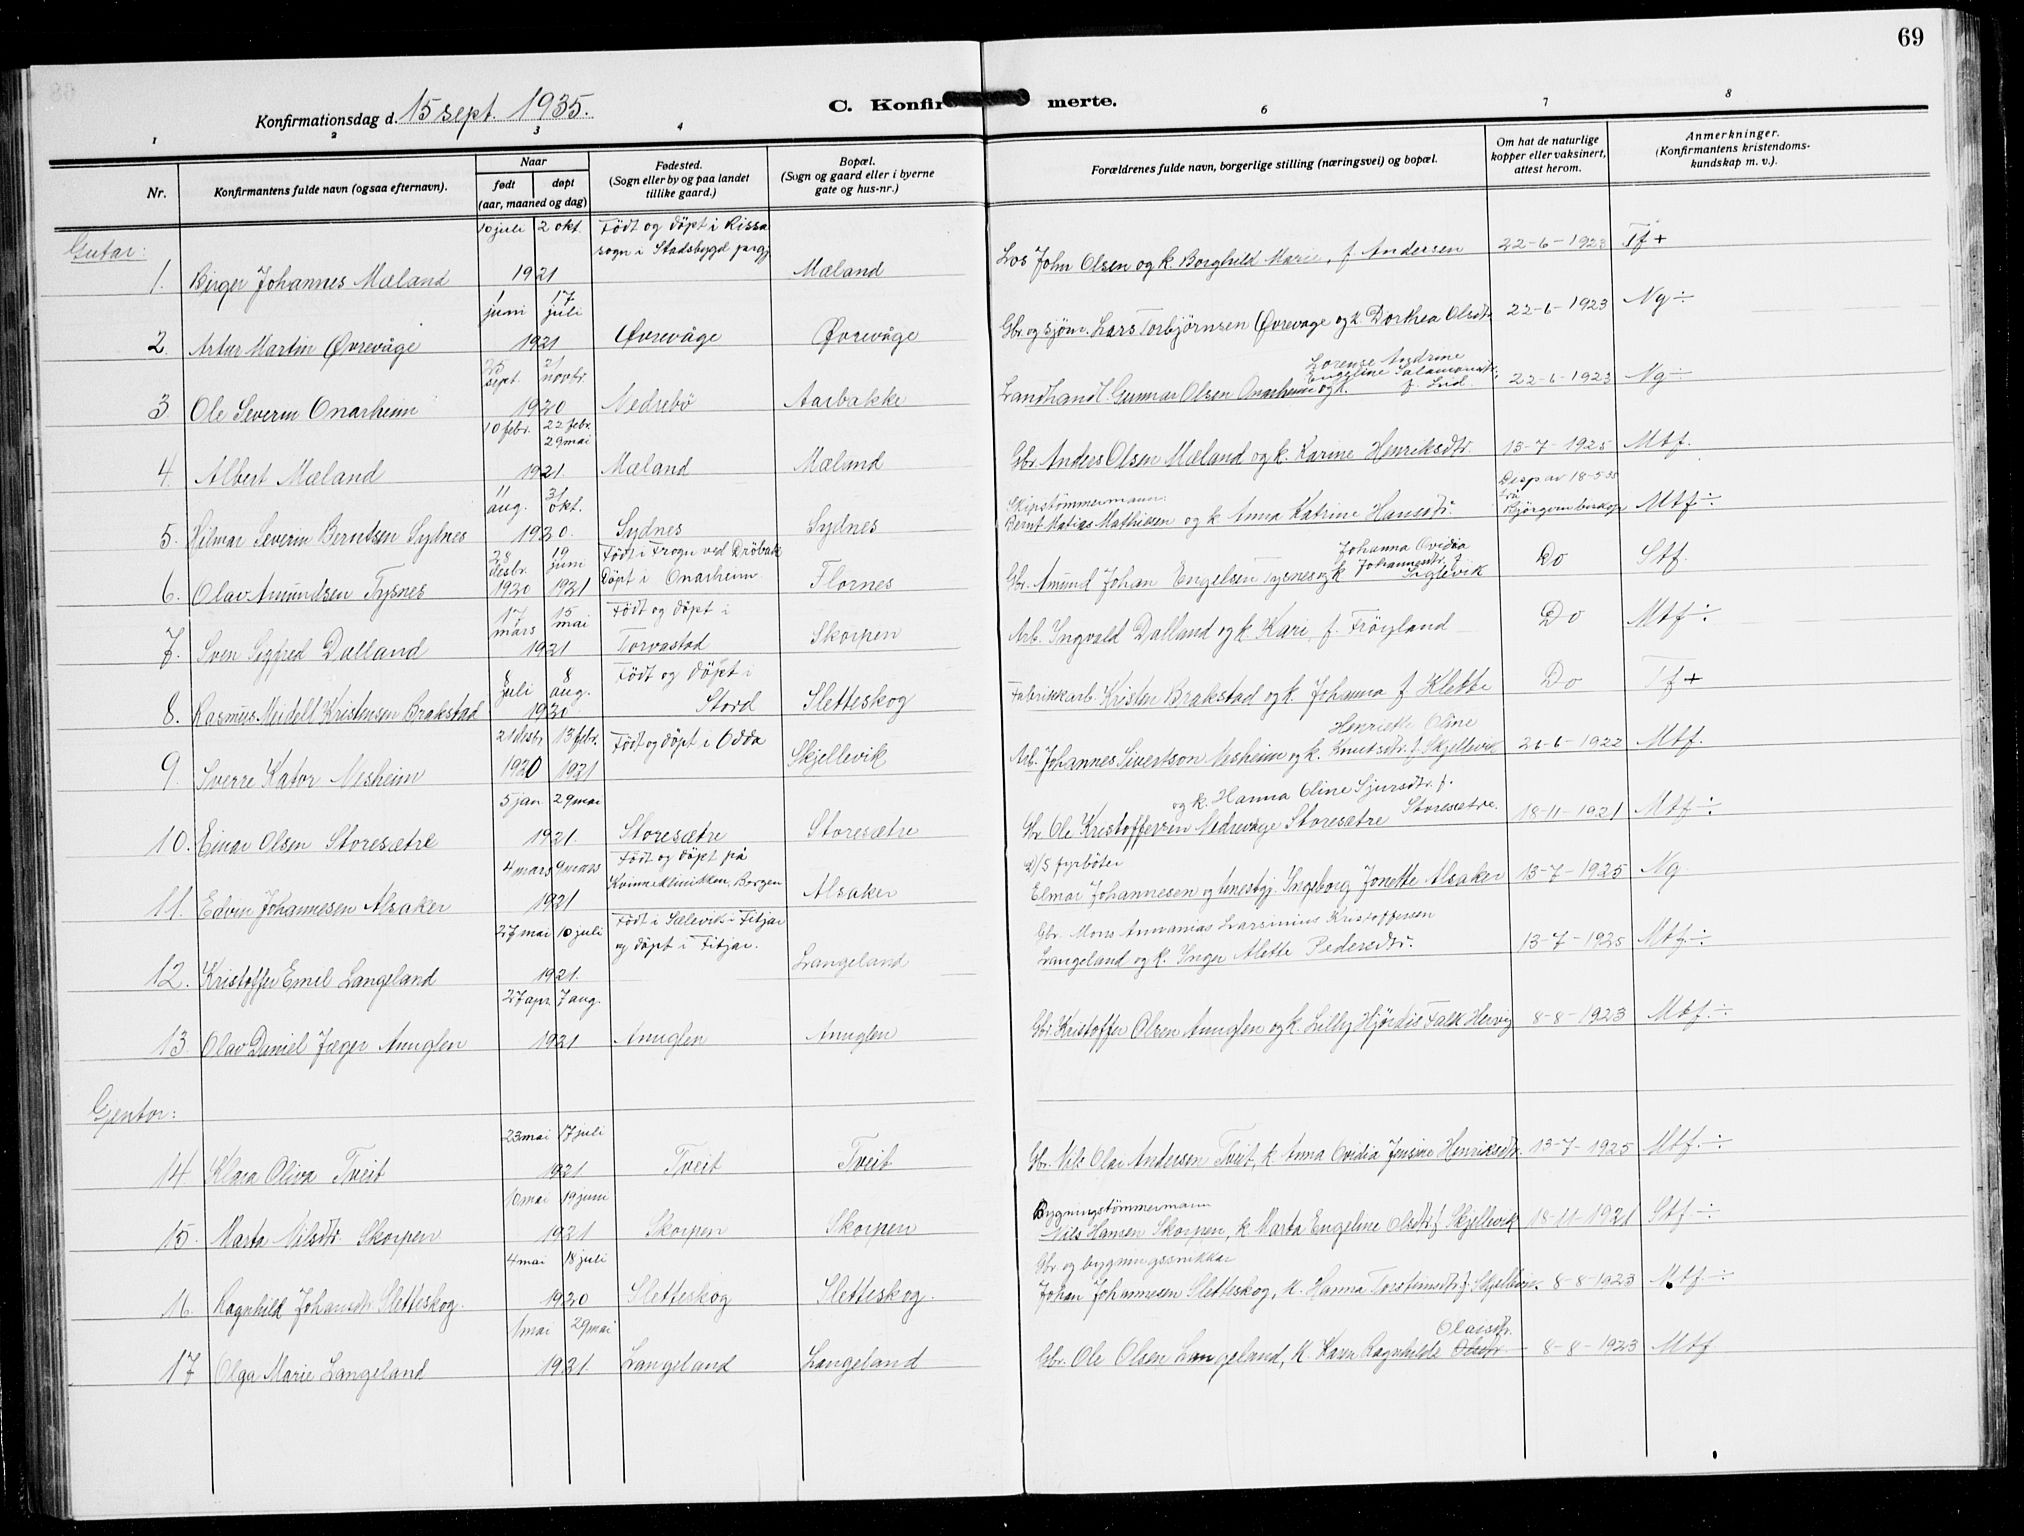 69
C. Konfirmerte.
Konfirmationsdag d. 15 sept. 1935.
1 2 3 4 6 7 8
Nr.
Konfirmantens fulde navn (ogsaa efternavn).
Naar
født
døpt
(aar, maaned og dag)
Fødested.
(Sogn eller by og paa landet
tillike gaard.)
Bopæl.
(Sogn og gaard eller i byerne
gate og hus-nr.)
Forældrenes fulde navn, borgerlige stilling (næringsvei) og bopæl.
Om hat de naturlige
kopper eller vaksinert,
attest herom.
Anmerkninger.
(Konfirmantens kristendoms-
kundskap m. v.).
Gutar:
10 juli 2 okt. Födt og döpt i Rissa
sogn i Stadsbygd prgj
1. Birger Johannes Mæland 1921 Mæland Los John Olsen og k. Borghild Marie, f. Andersen 22-6-1923 Tf +
1 juni 17 juli
2. Artur Martin Øvrevåge 1921 Øvrevåge Øvrevåge Gbr. og sjöm. Lars Torbjørnsen Øvrevåge og k. Dorthea Olsdtr 22-6-1923 Ng ÷
25 sept. 21 novbr. Lorense Andrine
Engeline Salamonsdtr.
3 Ole Severin Onarheim 1920 Nedrebö Aarbakke Landhandl. Gunnar Olsen Onarheim og k. f. Lid. 22-6-1923 Ng ÷
10 febr. 22 febr.
29 mai
4. Albert Mæland 1921 Mæland Mæland Gbr. Anders Olsen Mæland og k. Karine Henriksdtr. 13-7-1925 Mtf.
11 aug. 31 okt. Skipstömmermann. Disp av 18-5-35
frå
5. Hilmar Severin Berntsen Sydnes 1920. Sydnes Sydnes Bernt Matias Mathiesen og k Anna Katrine Hansdtr. Björgvin biskop Mtf ÷
28 desbr. 19 juni Födt i Frogn ved Dröbak Johanna Ovidia
Johannesdtr. f.
6. Olav Amundsen Tysnes 1920 1921 Döpt i Onarheim Flornes Gbr. Amund Johan Engelsen Tysnes og k Inglevik Do Stf.
17 mars 15 mai Födt og döpt i
7. Sven Sigfred Dalland 1921 Torvastad Skorpen Arb. Ingvald Dalland og k. Kari, f. Fröyland Do Mtf ÷
8 juli 8 aug. Födt og döpt i
8. Rasmus Meidell Kristensen Brakstad Stord Sletteskog Fabrikkarb. Kristen Brakstad og k. Johanna f Klette Do Tf +
21 desbr 13 febr. Födt og döpt i Odda Henriette Oline
9. Sverre Kator Nesheim 1920 1921 Skjellevik Arb. Johannes Sivertson Nesheim og k. Knutsdtr. f. Skjellevik 26-6-1922 Mtf.
5 jan. 29 mai og k. Hanna Oline Sjursdtr. f.
10. Einar Olsen Storesætre 1921. Storesætre Storesætre Gbr. Ole Kristoffersen Nedrevåge Storesætre Storesætre. 18-11-1921 Mtf ÷
4 mars 9 mars Födt og döpt på
Kvinneklinikken, Bergen D/S fyrböter
11. Edvin Johannesen Alsaker 1921 Alsaker Elmar Johannesen og tenestgj. Ingeborg Jonette Alsaker 13-7-1925 Ng
27 mai 10 juli Födt i Sælevik i Fitjar
og döpt i Fitjar. Gbr. Mons Annanias Larsinius Kristoffersen
12. Kristoffer Emil Langeland 1921. Langeland Langeland og k. Inger Alette Pedersdtr. 13-7-1925 Mtf ÷
27 apr. 7 aug.
13 Olav Daniel Jæger Anuglen 1921 Anuglen Anuglen Gbr. Kristoffer Olsen Anuglen og k. Lilly Hjördis Falk Hervig 8-8-1923 Mtf. ÷
Gjentor:
23 mai 17 juli
14 Klara Oliva Tveit 1921 Tveit Tveit Gbr. Nils Olai Andersen Tveit, k Anna Ovidia Jensine Henriksdtr. 13-7-1925 Mtf. ÷
10 mai 19 juni Bygningstömmermann
15. Marta Nilsdtr. Skorpen 1921 Skorpen Skorpen Nils Hansen Skorpen, k. Marta Engeline Olsdtr f Skjellevik 18-11-1921 Stf. ÷
4 mai 18 juli Gbr. og bygningssnikkar
16. Ragnhild Johansdtr. Sletteskog. 1920 Sletteskog Sletteskog. Johan Johannesen Sletteskog, k. Hanna Torsteinsdtr f Skjellevik. 8-8-1923 Mtf ÷
1 mai 29 mai Olaisdtr.
17 Olga Marie Langeland 1921. Langeland Langeland Gbr. Ole Olsen Langeland, k. Karen Ragnhilde Olsdtr 8-8-1923 Mtf